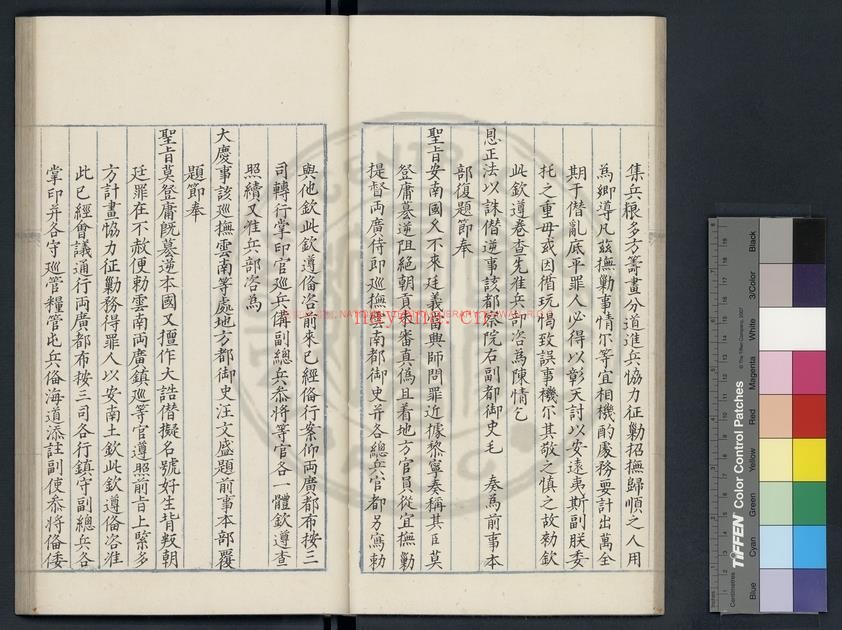 集兵粮多方籌畫分道進兵恊力征勦招撫歸順之人用
為鄉導凡兹撫勦事情尔等宜相機酌處務要計出萬全
期于僣亂底平罪人必得以彰天討以安遠夷斯副朕委
托之重毋或因循玩愒致誤事機尔其敬之慎之故勑欽
此欽遵卷查先准兵部咨為陳情乞
恩正法以誅僣逆事該都察院右副都御史毛 奏為前事本
部復題節奉
聖旨安南國久不來廷義當興師問罪近據黎寧奏稱其臣莫
登庸簒逆阻絶朝貢未審真偽且着地方官員從宜撫勦
提督兩廣侍郎巡撫雲南都御史并各總兵官都另寫勑
與他欽此欽遵俻咨前來已經俻行案仰兩廣都布按三
司轉行掌印官巡兵俻副總兵叅將等官各一體欽遵查
照續又准兵部咨為
大慶事該巡撫雲南等處地方都御史汪文盛題前事本部覆
題節奉
聖旨莫登庸旣簒逆本國又擅作大誥僣擬名號好生背叛朝
廷罪在不赦便勅雲南兩廣鎮巡等官遵照前旨上緊多
方計畫恊力征勦務得罪人以安南土欽此欽遵俻咨准
此已經會議通行兩廣都布按三司各行鎮守副總兵各
掌印并各守巡管糧管屯兵俻海道添註副使叅將俻倭
Centimetres
TIFFEN Color Control Patches
© The Tiffen Company, 2007
Blue
Cyan
Green
Yellow
Red
Magenta
White
3/Color
Black